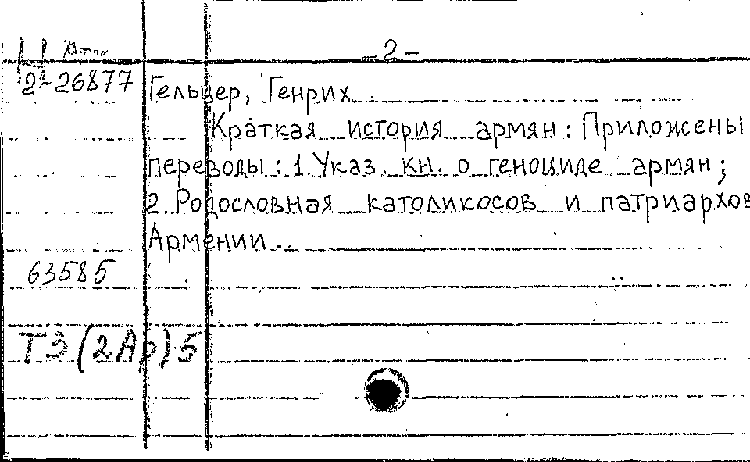 -2-
2-26877 Гельцер, Генрих
Краткая история армян: Приложены
переводы: 1. Указ. кн. о геноциде армян;
2. Родословная католикосов и патриархов
Армении..
63585
Т3(2Ар)5